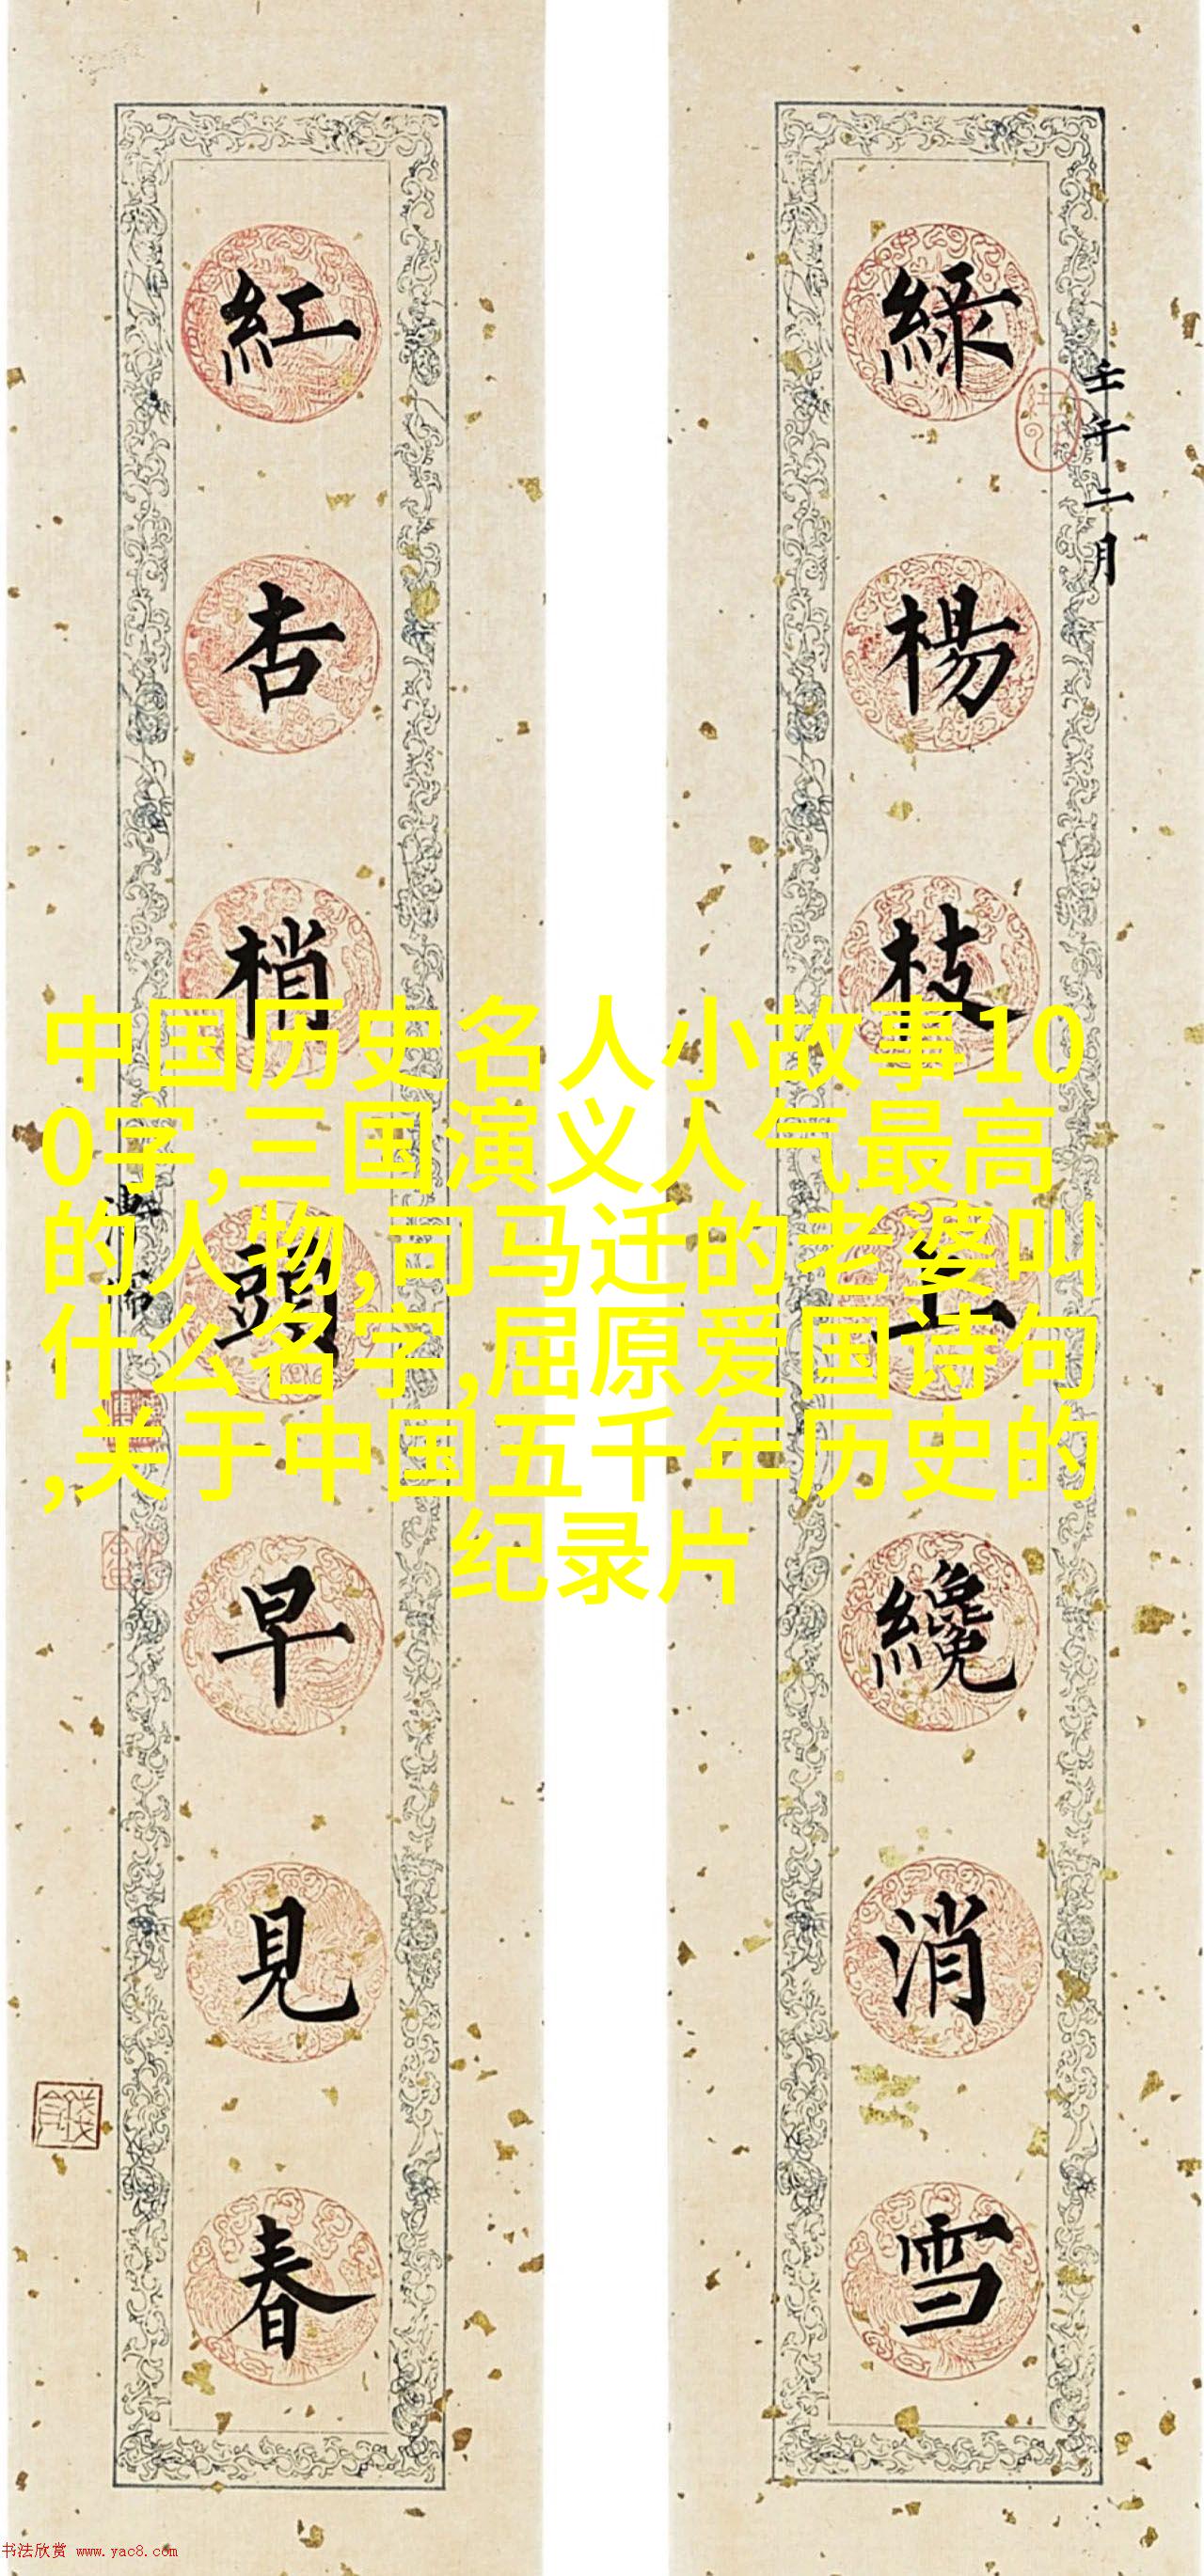 壬午二月
綠楊枝上纔消雪
紅杏梢頭早見春
溥儒
中国历史名人小故事10
0字,三国演义人气最高
的人物,司马迁的老婆叫
什么名字,屈原爱国诗句
,关于中国五千年历史的
纪录片
书法欣赏 www.yac8.com